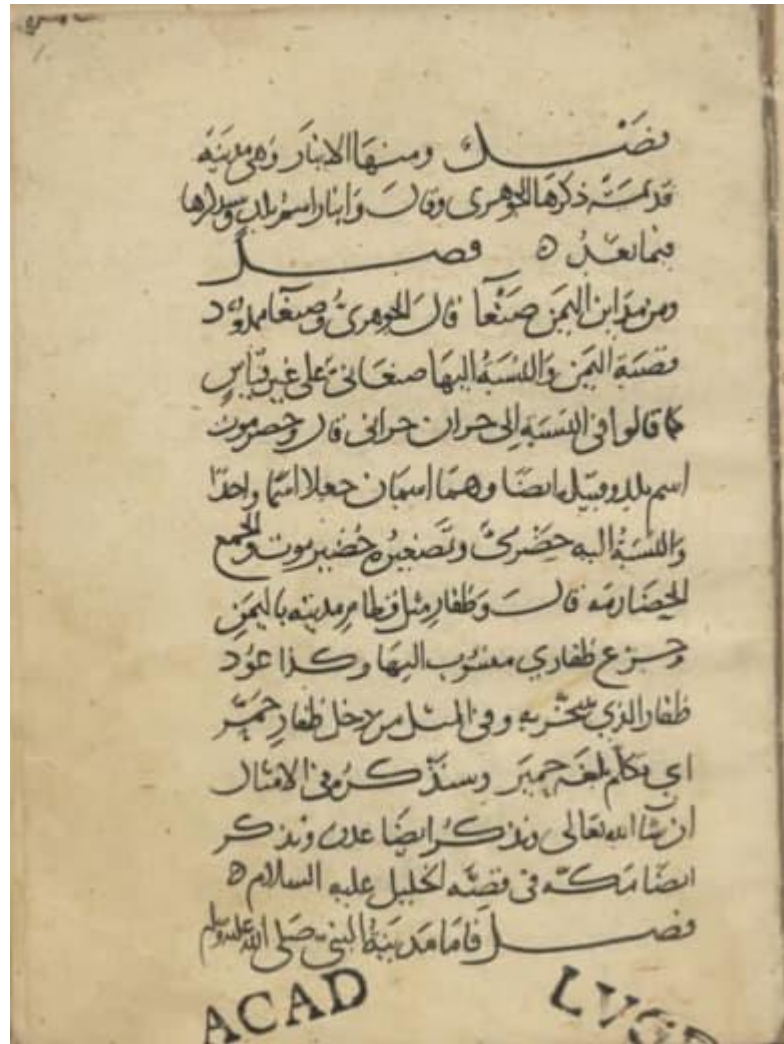 فصل ومنها الانبار وهى مدينة
قديمة ذكرها الجوهرى وقال وانبار اسم بلد وسنذكرها
فيما بعد ه فصل
ومن مداين اليمن صنعا قال الجوهرى وصنعا ممدود
قصبة اليمن والنسبة اليها صنعانى على غير قياس
كما قالوا فى النسبة الى حران حرانى قال وحضرموت
اسم بلد وقبيلة ايضا وهما اسمان جعلا اسما واحدا
والنسبة اليه حضرمى وتصغيره حضيرموت والجمع
الحضارمه قال وظفار مثل قطام مدينه باليمن
وجزع ظفاري منسوب اليها وكذا عود
ظفار الذي يتبخر به وفى المثل من دخل ظفار حمر
اي تكلم بلغه حمير وسنذكره فى الامثال
ان شا الله تعالى ونذكر ايضا عدن ونذكر
ايضا مكه فى قصه الخليل عليه السلام ه
فصل فاما مدينة النبى صلى الله عليه وسلم
ACAD LVGD